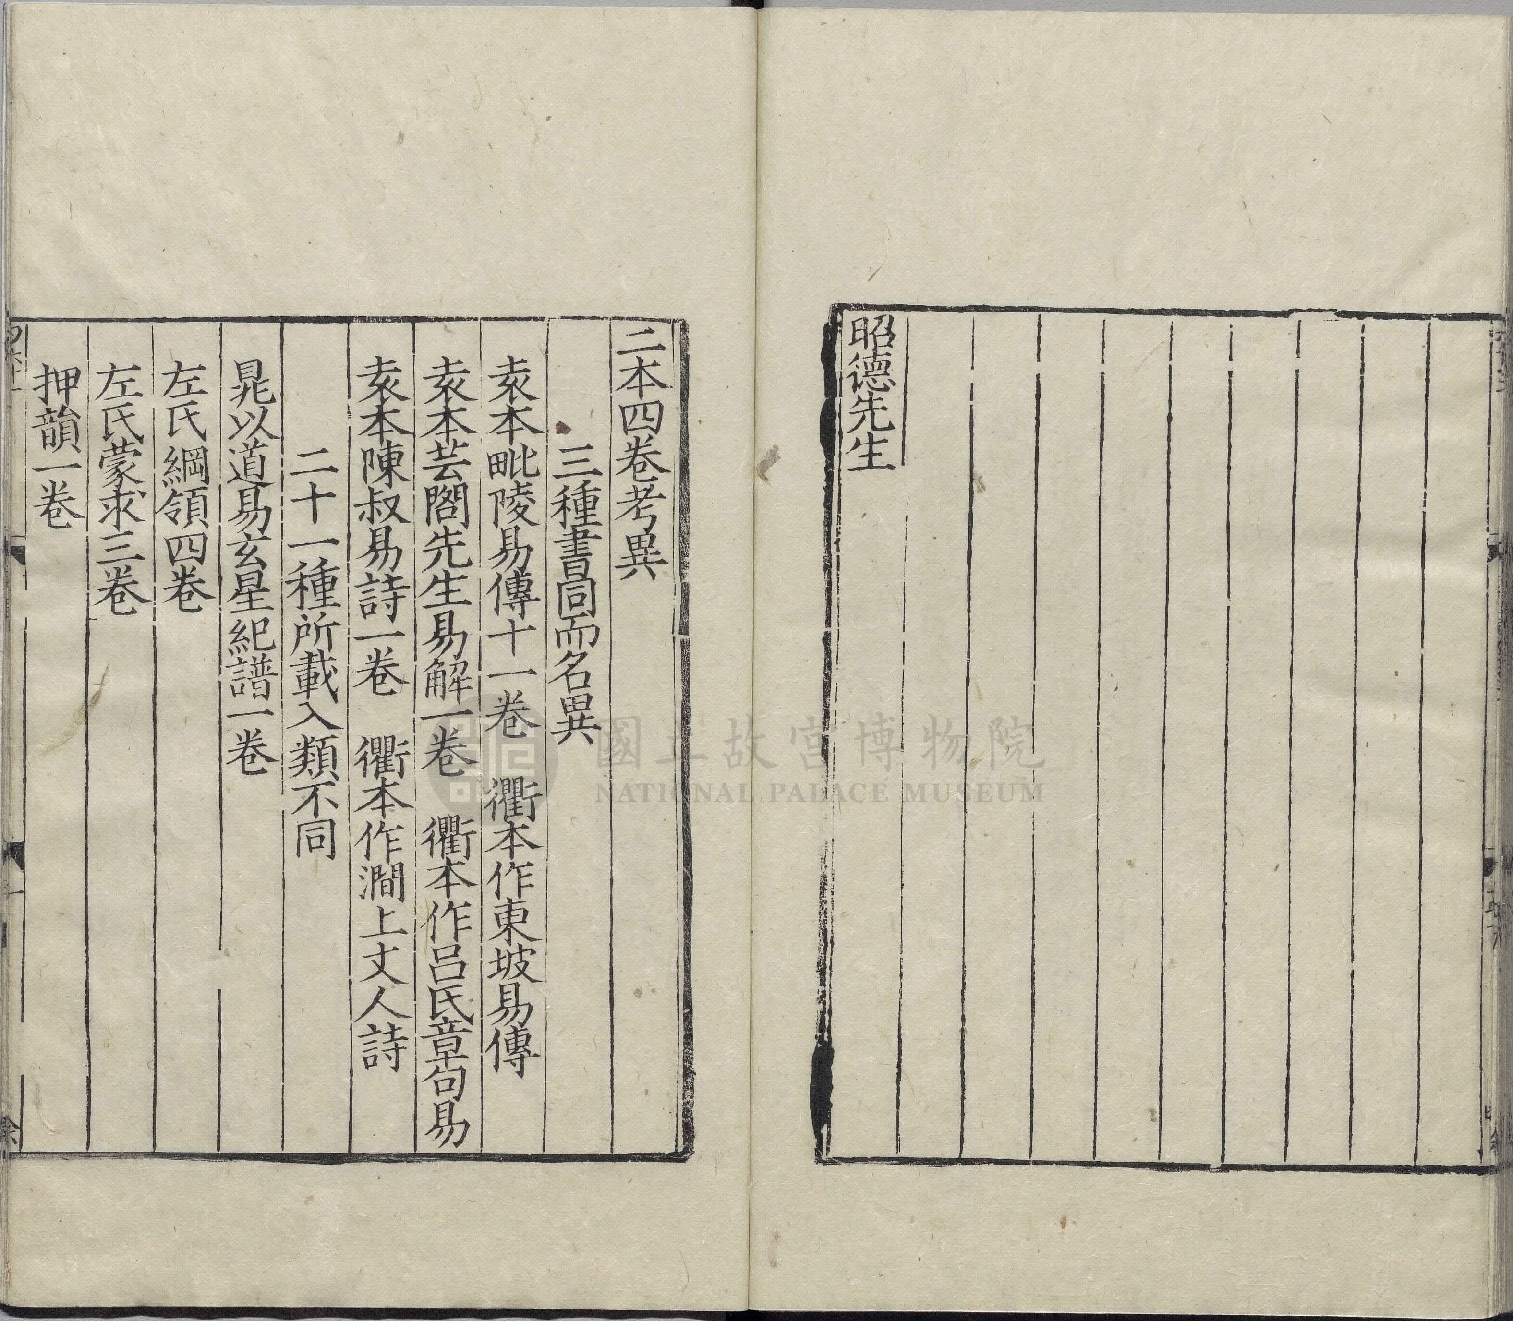 昭德先生
二本四卷考異
三種書同而名異
袁本毗陵易傳十一卷　衢本作東坡易傳
袁本芸閣先生易解一卷　衢本作呂氏章句易
袁本陳叔易詩一卷　衢本作澗上丈人詩
二十一種所載入類不同
晁以道易玄星紀譜一卷
左氏綱領四卷
左氏蒙求三卷
押韻一卷
國立故宮博物院
NATIONAL PALACE MUSEUM